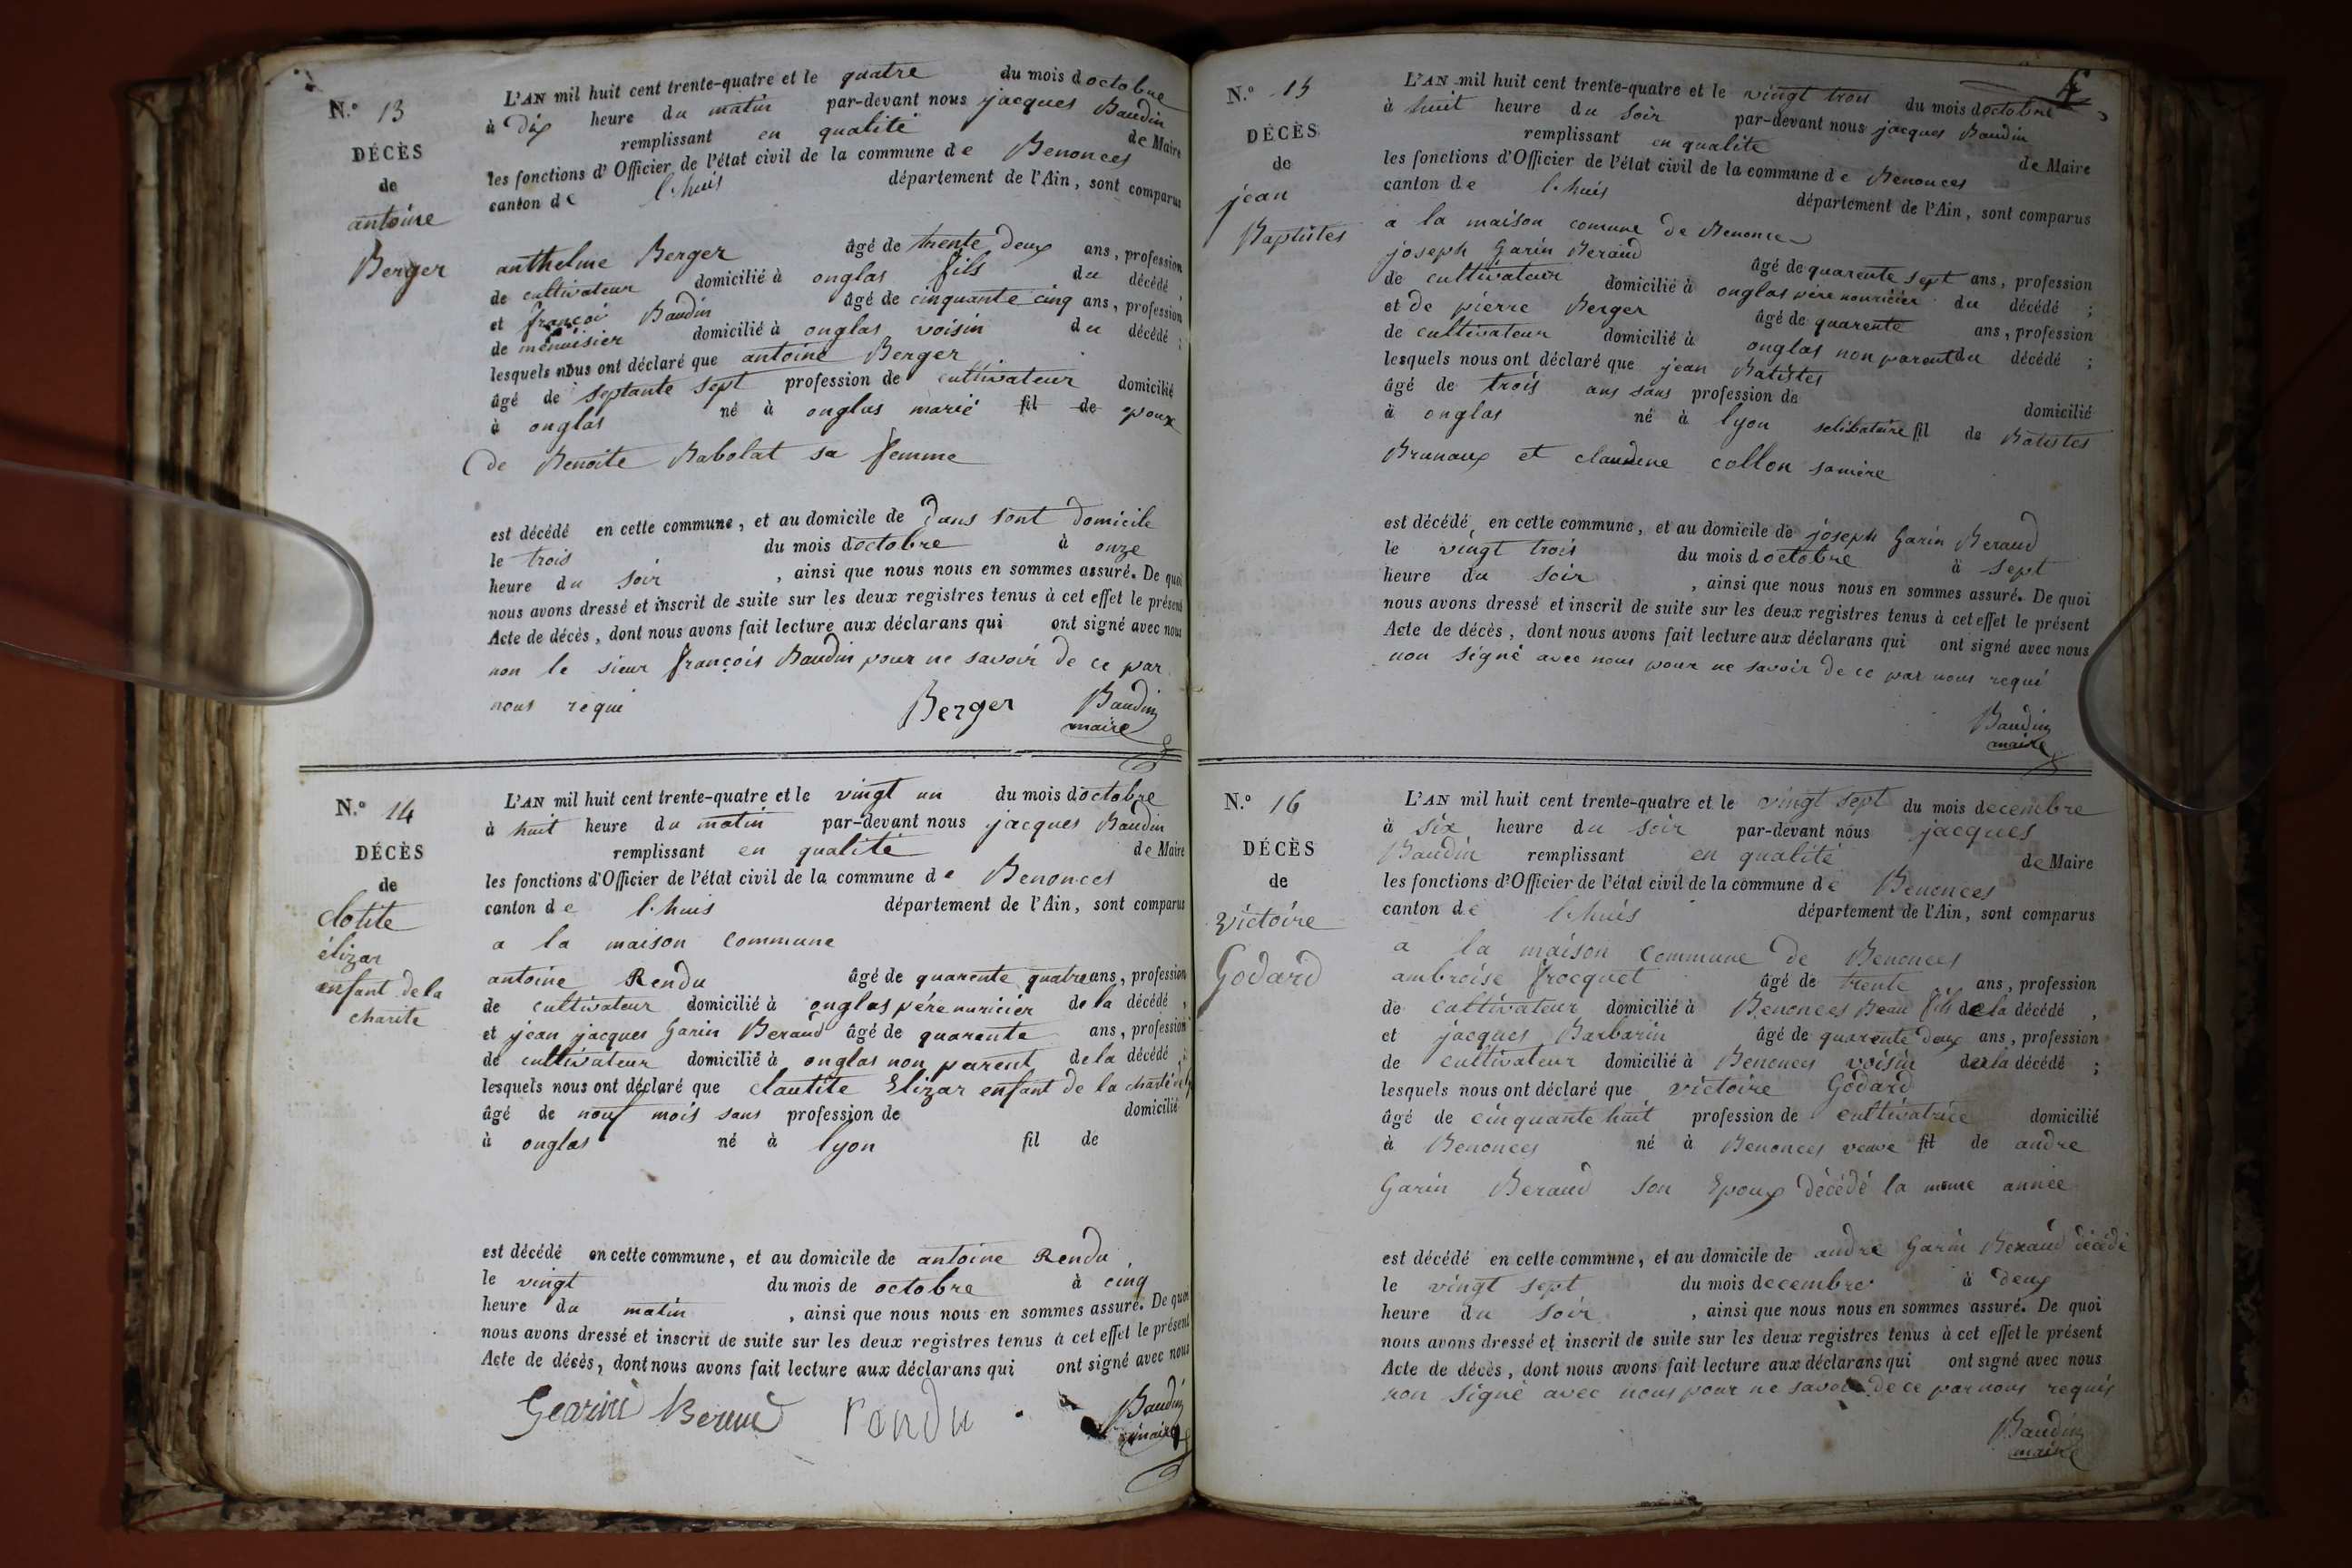 N.° 13
DÉCÈS
de
antoine
Berger
L'AN mil huit cent trente-quatre et le quatre du mois doctobre
à dix heure du matin par-devant nous jacques Baudin
remplissant en qualité de Maire
les fonctions d'Officier de l'état civil de la commune de Benonces
canton de l.huis département de l'Ain, sont comparus
anthelme Berger âgé de trente deux ans, profession
de cultivateur domicilié à onglas fils du décédé,
et françoi Baudin âgé de cinquante cinq ans, profession
de menuisier domicilié à onglas voisin du décédé;
lesquels nous ont déclaré que antoine Berger
âgé de septante sept profession de cultivateur domicilié
à onglas né à onglas marié fil de epoux
de Benoite Babolat sa femme
est décédé en cette commune, et au domicile de dans sont domicile
le trois du mois doctobre à onze
heure du soir, ainsi que nous nous en sommes assuré. De quoi
nous avons dressé et inscrit de suite sur les deux registres tenus à cet effet le présent
Acte de décès, dont nous avons fait lecture aux déclarans qui ont signé avec nous
non le sieur françois Baudin pour ne savoir de ce par
nous requi
Berger Baudin
maire
N.° 14
DÉCÈS
de
clotite
élizar
enfant de la
charite
L'AN mil huit cent trente-quatre et le vingt un du mois d'octobre
à huit heure du matin par-devant nous jacques Baudin
remplissant en qualité de Maire
les fonctions d'Officier de l'état civil de la commune de Benonces
canton de l.huis département de l'Ain, sont comparus
a la maison commune
antoine Rendu âgé de quarente quatre ans, profession
de cultivateur domicilié à onglas père nuricier de la décédé,
et jean jacques Garin Beraud âgé de quarente ans, profession
de cultivateur domicilié à onglas non parent de la décédé;
lesquels nous ont déclaré que clautite Elizar enfant de la charté
âgé de nouf mois sans profession de domicilié
à onglas né à lyon fil de
est décédé en cette commune, et au domicile de antoine Rendu
le vingt du mois de octobre à cinq
heure du matin, ainsi que nous nous en sommes assuré. De quoi
nous avons dressé et inscrit de suite sur les deux registres tenus à cet effet le présent
Acte de décès, dont nous avons fait lecture aux déclarans qui ont signé avec nous
Gearin Beraud randu Baudin
maire
N.° 15
DÉCÈS
de
jean
Baptistes
L'AN mil huit cent trente-quatre et le vingt trois du mois doctobre
à huit heure du soir par-devant nous jacques Baudin
remplissant en qualite de Maire
les fonctions d'Officier de l'état civil de la commune de Benonces
canton de l.huis département de l'Ain, sont comparus
a la maison comune de Benonces
joseph Garin Beraud âgé de quarente sept ans, profession
de cultivateur domicilié à onglas père nouricier du décédé;
et de pierre Berger âgé de quarente ans, profession
de cultivateur domicilié à onglas non parent du décédé;
lesquels nous ont déclaré que jean Batistes
âgé de trois ans sans profession de domicilié
à onglas né à lyon selibataire fil de Batistes
Brunaux et claudine collon samère
est décédé en cette commune, et au domicile de joseph Garin Beraud
le vingt trois du mois doctobre à sept
heure du soir, ainsi que nous nous en sommes assuré. De quoi
nous avons dressé et inscrit de suite sur les deux registres tenus à cet effet le présent
Acte de décès, dont nous avons fait lecture aux déclarans qui ont signé avec nous
non signé avec nous pour ne savoir de ce par nous requi
Baudin
maire
N.° 16
DÉCÈS
de
victoire
Godard
L'AN mil huit cent trente-quatre et le vingt sept du mois decembre
à six heure du soir par-devant nous jacques
Baudin remplissant en qualité de Maire
les fonctions d'Officier de l'état civil de la commune de Benonces
canton de l.huis département de l'Ain, sont comparus
a la maison commune de Benonces
ambroise frocquet âgé de trente ans, profession
de cultivateur domicilié à Benonces Beau fils de la décédé,
et jacques Barbarin âgé de quarente deux ans, profession
de cultivateur domicilié à Benonces voisin de la décédé;
lesquels nous ont déclaré que victoire Godard
âgé de cinquante huit profession de cultivatrice domicilié
à Benonces né à Benonces veuve fil de andre
Garin Beraud son Epoux décédé la meme année
est décédé en cette commune, et au domicile de andre Garin Beraud décédé
le vingt sept du mois decembre à deux
heure du soir, ainsi que nous nous en sommes assuré. De quoi
nous avons dressé et inscrit de suite sur les deux registres tenus à cet effet le présent
Acte de décès, dont nous avons fait lecture aux déclarans qui ont signé avec nous
non signé avec nous pour ne savoir de ce par nous requis
Baudin
maire